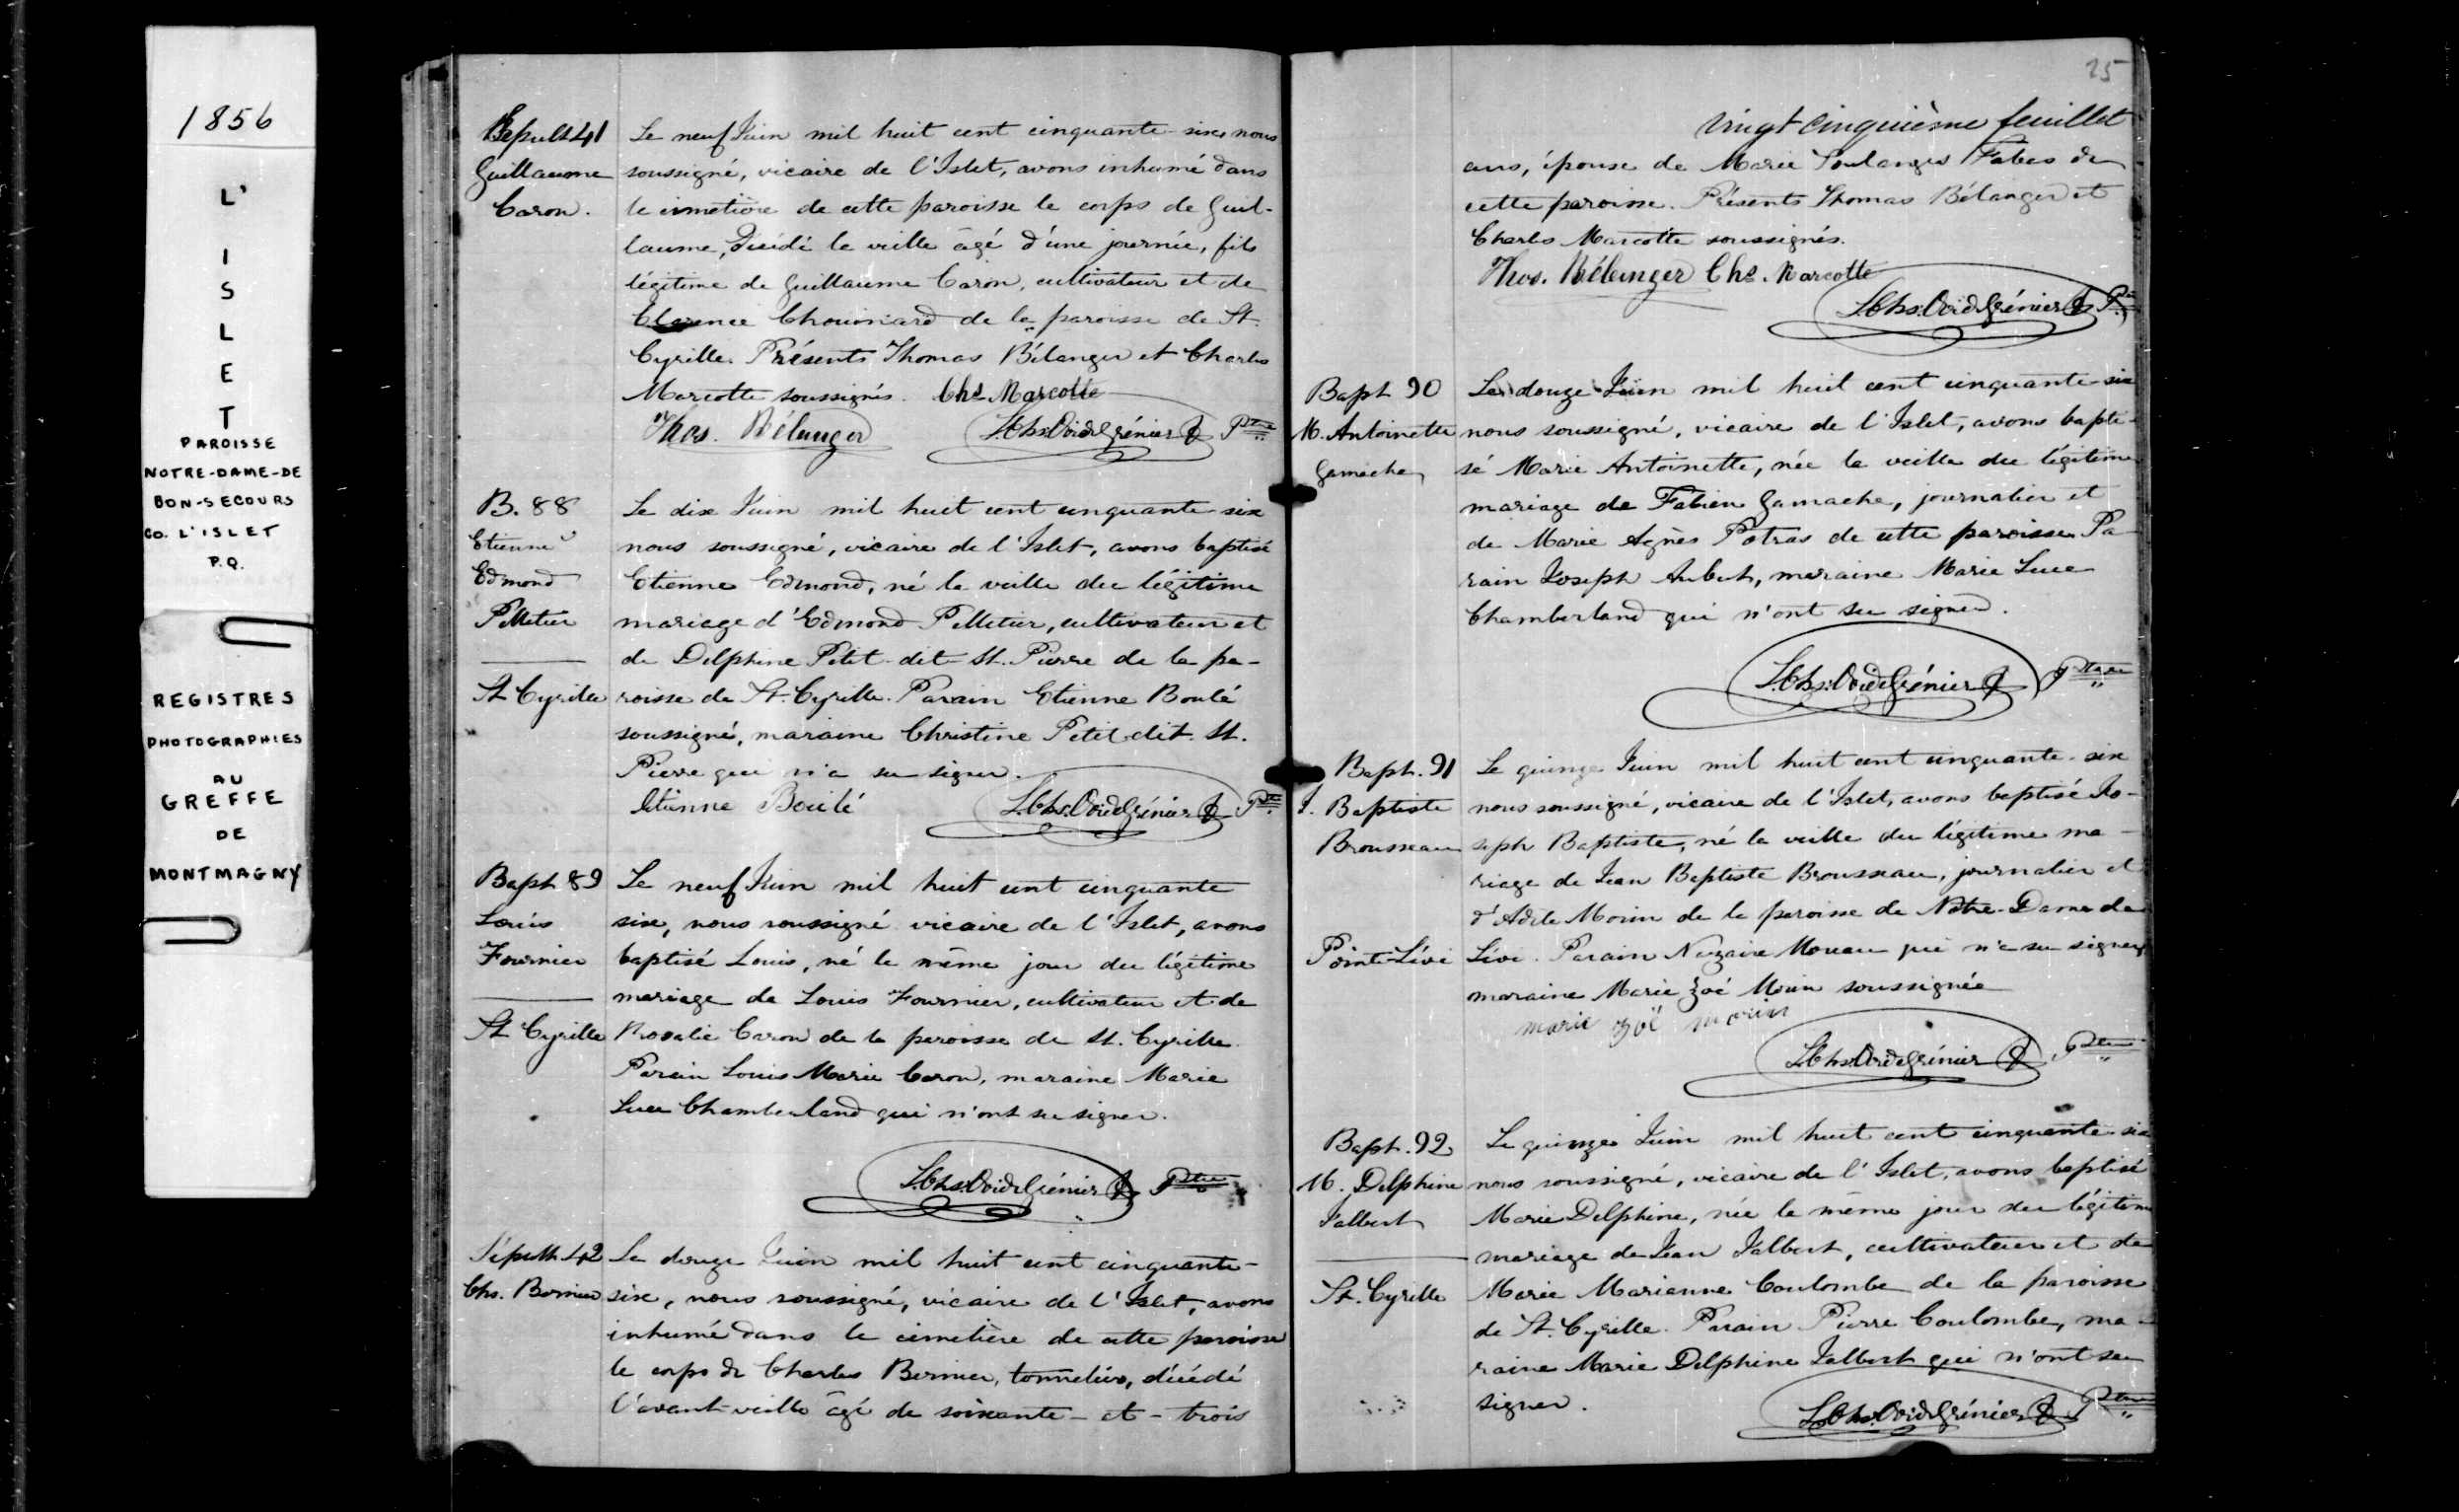 1856
L'
I
S
L
E
T
PAROISSE
NOTRE-DAME-DE
BON-SECOURS
CO. L'ISLET
P.Q.
REGISTRES
PHOTOGRAPHIES
AU
GREFFE
DE
MONTMAGNY
Sepult 41
Guillaume
Caron.
Le neuf Juin mil huit cent cinquante-six nous
soussigné, vicaire de l'Islet, avons inhumé dans
le cimetière de cette paroisse le corps de Guil-
laume, décédé la veille âgé d'une journée, fils
légitime de Guillaume Caron, cultivateur et de
Chouinard de la paroisse de St.
Cyrille. Présents Thomas Bélanger et Charles
Marcotte soussignés. Chs Marcotte
Thos. Bélanger Ptre
B. 88
Etienne
Edmond
Pelletier
St Cyrille
Le dix Juin mil huit cent cinquante six
nous soussigné, vicaire de l'Islet, avons baptisé
Etienne Edmond, né la veille du légitime
mariage d'Edmond Pelletier, cultivateur et
de Delphine Petit dit St. Pierre de la pa-
roisse de St. Cyrille. Parain Etienne Boulé
soussigné, maraine Christine Petit dit St.
Pierre qui n'a su signer.
Etienne Boulé Ptre
Bapt 89
Louis
Fournier
St Cyrille
Le neuf Juin mil huit cent cinquante
six, nous soussigné vicaire de l'Islet, avons
baptisé Louis, né le même jour du légitime
mariage de Louis Fournier, cultivateur et de
Rosalie Caron de la paroisse de St. Cyrille.
Parain Louis Marie Caron, maraine Marie
Luce Chamberland qui n'ont su signer.
Ptre
Sépult 42
Chs. Bernier
Le douze Juin mil huit cent cinquante-
six, nous soussigné, vicaire de l'Islet, avons
inhumé dans le cimetière de cette paroisse
le corps de Charles Bernier, tonnelier, décédé
l'avant-veille âgé de soixante-et-trois
25
Vingt cinquième feuillet
ans, épouse de Marie Soulanges de
cette paroisse. Présents Thomas Bélanger et
Charles Marcotte soussignés.
Thos. Bélanger Chs. Marcotte
Ptre
Bapt 90
M. Antoinette
Gamache
Le douze Juin mil huit cent cinquante-six
nous soussigné, vicaire de l'Islet, avons bapti-
sé Marie Antoinette, née la veille du légitime
mariage de Fabien Gamache, journalier et
de Marie Agnès Potras de cette paroisse. Pa-
rain Joseph Aubut, maraine Marie Luce
Chamberland qui n'ont su signer.
Ptre
Bapt. 91
J. Baptiste
Brousseau
Pointe-Lévi
Le quinze Juin mil huit cent cinquante-six
nous soussigné, vicaire de l'Islet, avons baptisé Jo-
seph Baptiste, né la veille du légitime ma-
riage de Jean Baptiste Brousseau, journalier et
d'Adèle Morin de la paroisse de Notre-Dame de
Lévi. Parain Nazaire qui n'a su signer,
maraine Marie Zoé Morin soussignée
marie zoë morin
Ptre
Bapt. 92
M. Delphine
Jalbert
St. Cyrille
Le quinze Juin mil huit cent cinquante-six
nous soussigné, vicaire de l'Islet, avons baptisé
Marie Delphine, née le même jour du légitime
mariage de Jean Jalbert, cultivateur et de
Marie Marianne Coulombe de la paroisse
de St. Cyrille. Parain Pierre Coulombe, ma-
raine Marie Delphine Jalbert qui n'ont su
signer.
Ptre